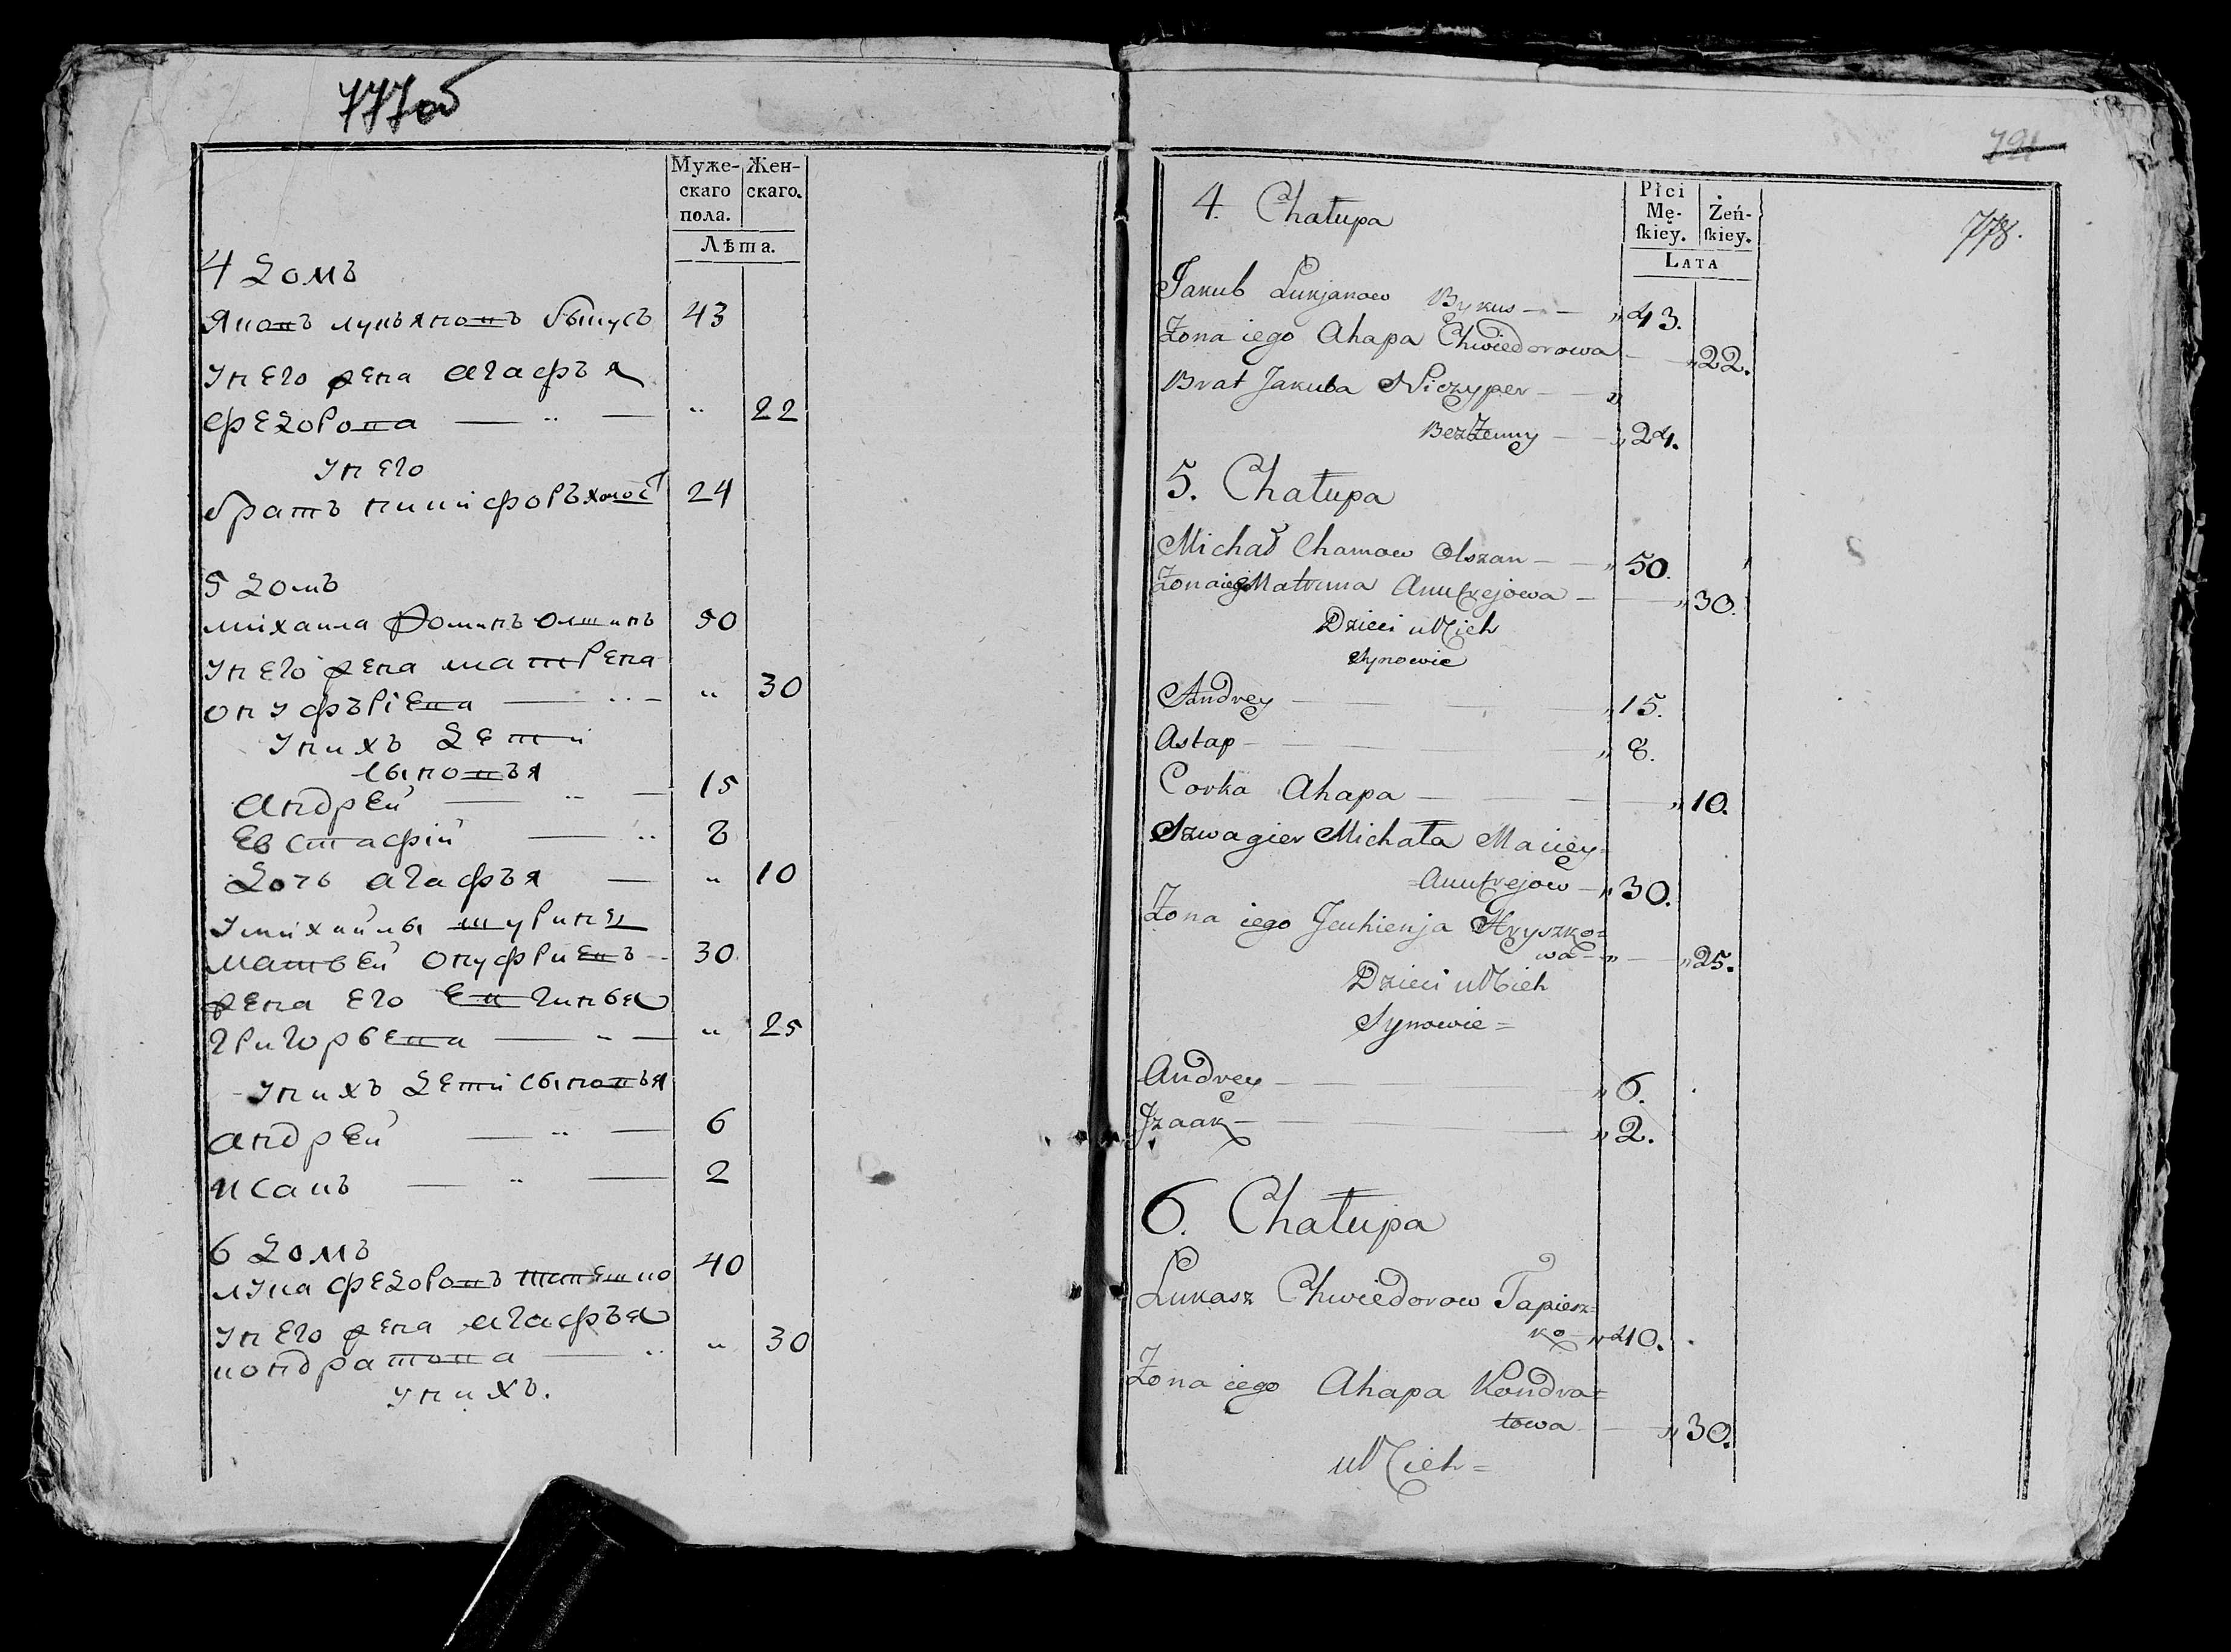 777об
Муже-
скаго
пола.
Жен-
скаго.
Лѣта.
4 Домъ
Яковъ лукъяновъ быкусъ 43
У него жена агафъя
федорова — „ — „ 22
У него
братъ никифоръ холост 24
5 Домъ
михаила Фоминъ олшанъ 50
У него жена матрена
онуфъріева — „ 30
У нихъ Дети
Сыновъя
андрей — „ — 15
Евстафій — „ 8
Дочь агафъя — „ 10
У михайлы шуринъ
матвей онуфриевъ -- 30
жена его Евгинья
григорьева — „ — „ 25
- У нихъ Дети Сыновья
андрей — „ — 6
исакъ — „ — 2
6 Домъ
лука федоровъ 40
У него жена агафъя
кондратова — „ „ 30
У нихъ.
791
778.
Płci
Mę-
ſkiey.
Żeń-
ſkiey.
LATA
4. Chałupa
Jakub Lukjanow Bykus — — „ 43.
Żona iego Ahapa Chwiedorowa — — „ 22.
Brat Jakuba Niczyper — — „
Bezżenny — — „ 24.
5. Chałupa
Michał Chamow Olszan — — „ 50.
Żona iego Matruna Anufrejowa — — „ 30.
Dzieci u Nich
Synowie
Andrey — — — „ 15.
Astap — — — „ 8.
Corka Ahapa — — — „ 10.
Szwagier Michała Maciey=
=Anufrejow — „ 30.
Żona iego Jeuhienja Hryszko=
wa — „ — „ 25.
Dzieci u Nich
Synowie =
Andrey — — „ 6.
Jzaak — — — „ 2.
6. Chałupa
Łukasz Chwiedorow Tapiesz=
ko — „ 40.
Żona iego Ahapa Kondra=
towa — — „ 30.
u Nich =